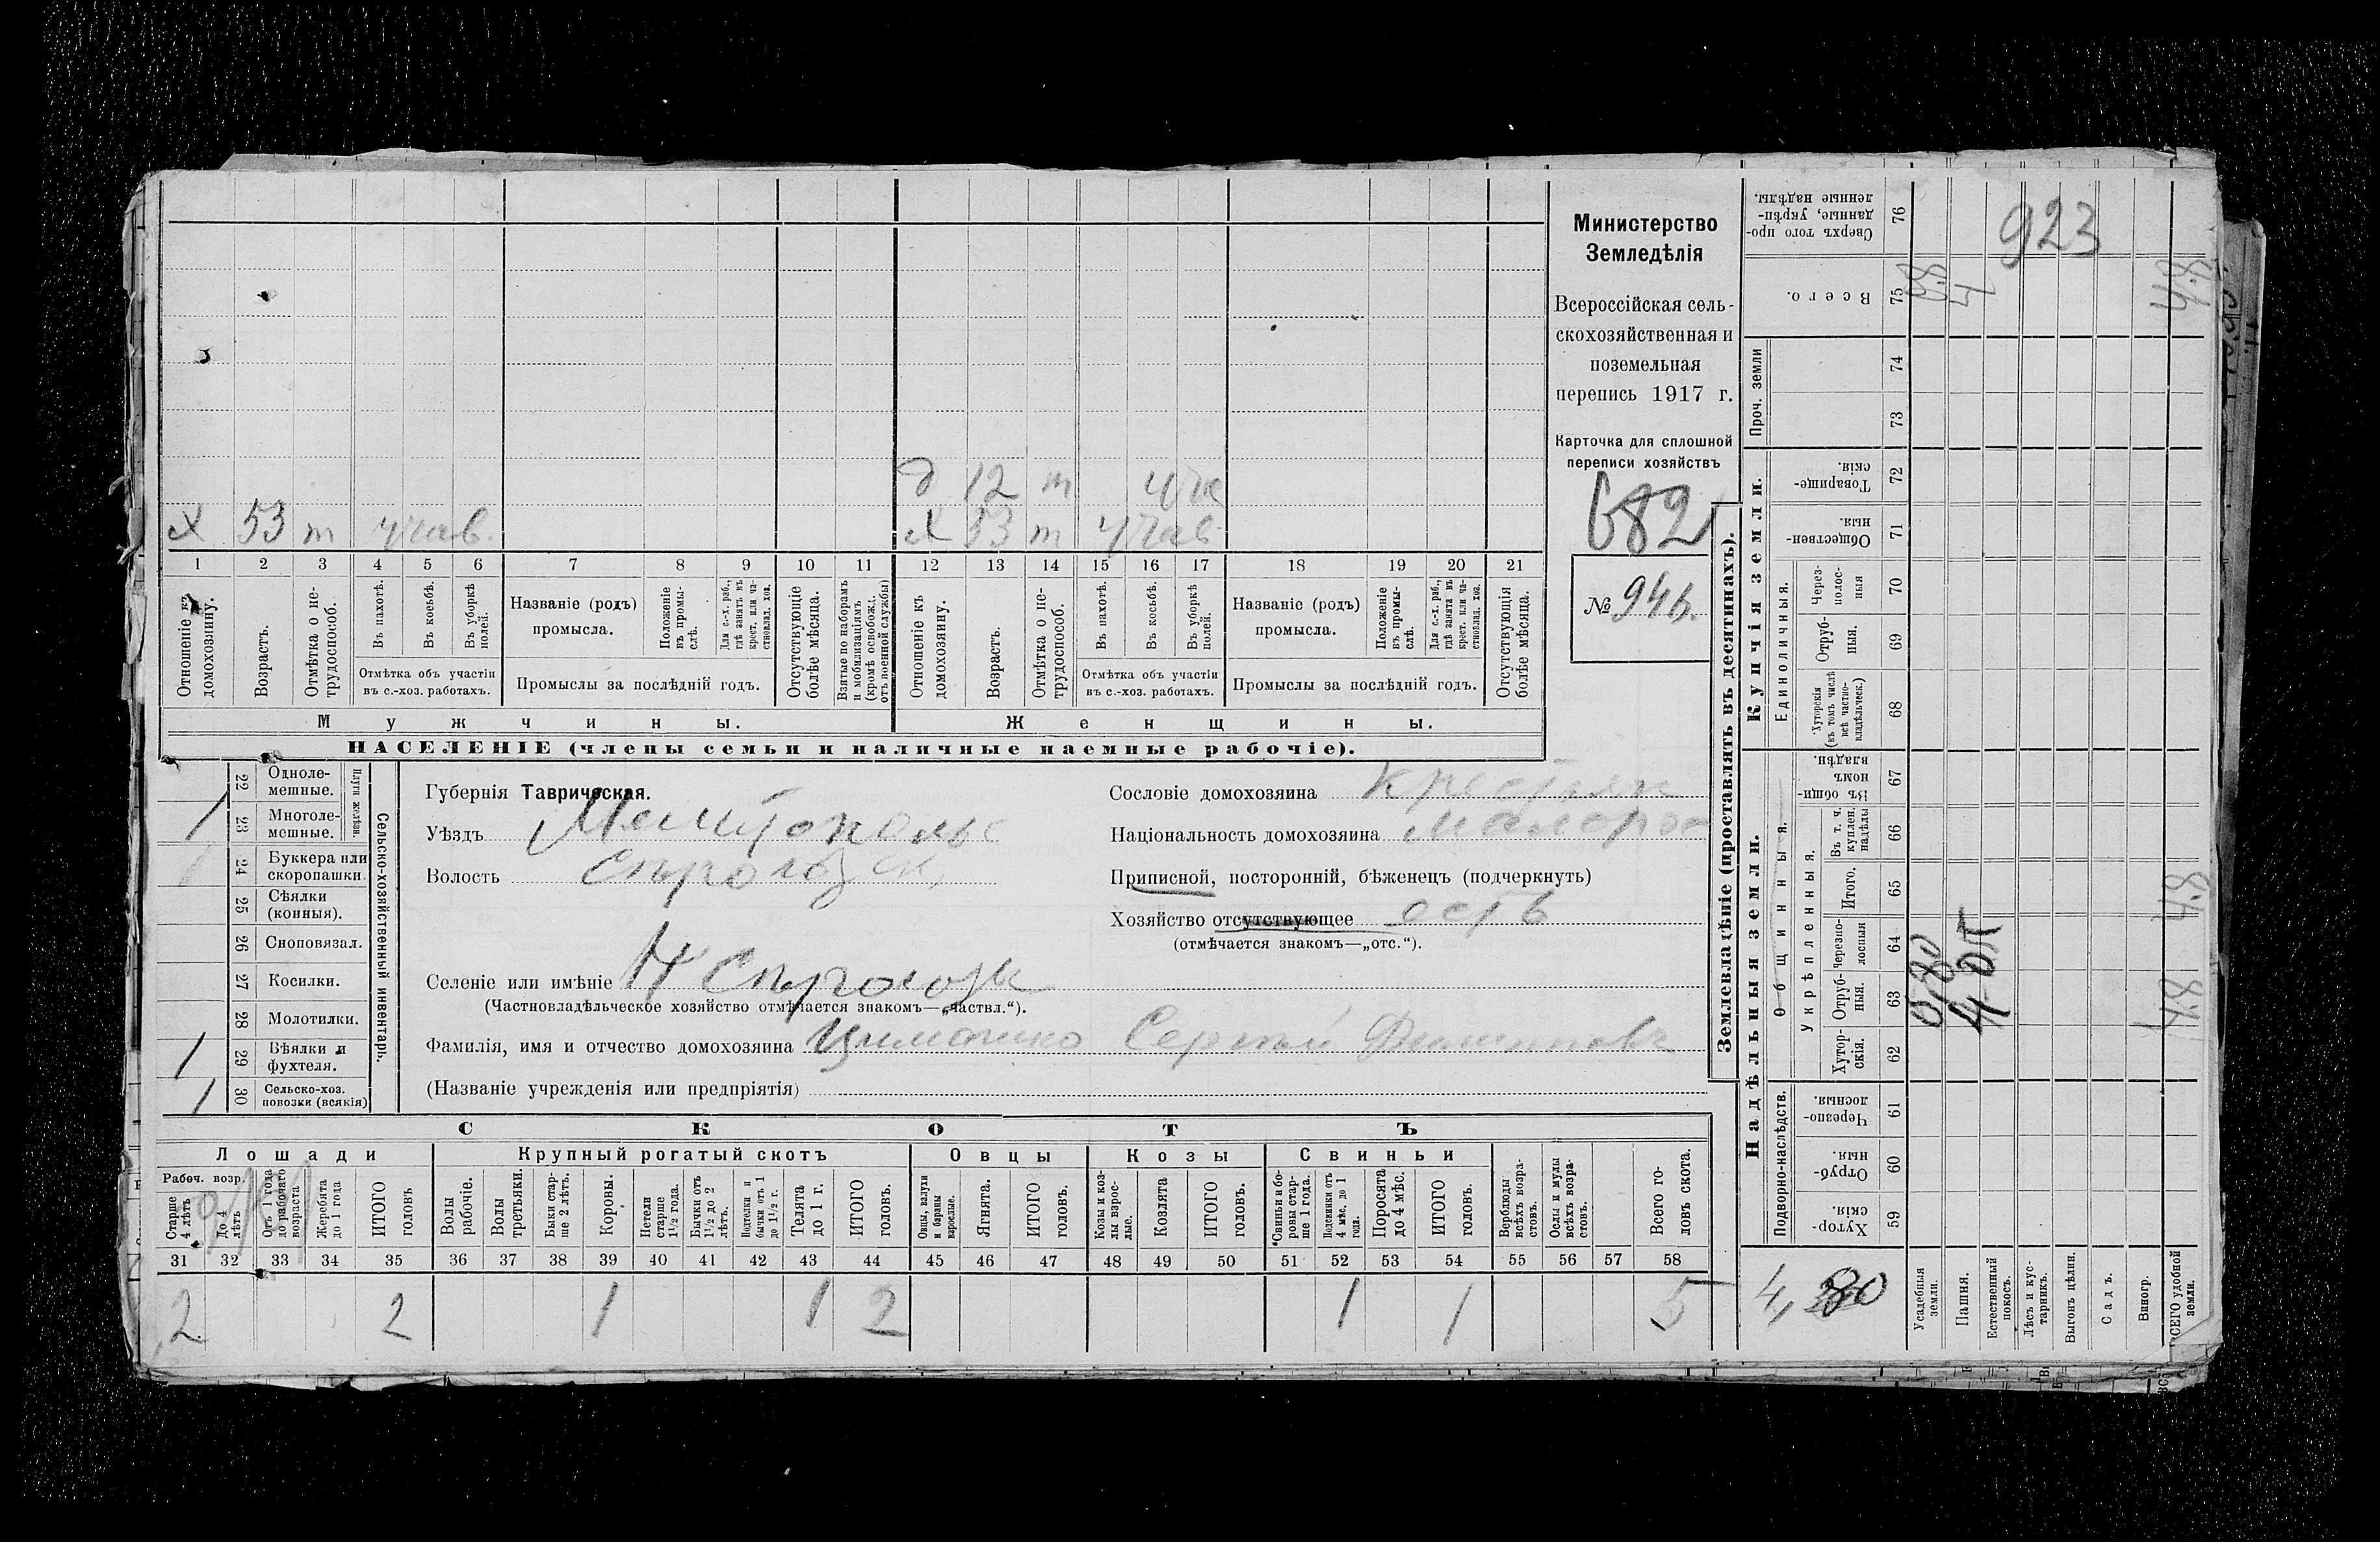 Министерство
Земледѣлія
Всероссійская сель-
скохозяйственная и
поземельная
перепись 1917 г.
Карточка для сплошной
переписи хозяйствъ
682
№ 946.
д 12 т
х 53 т учав.
х 53 т учав
1 2 3 4 5 6 7 8 9 10 11 12 13 14 15 16 17 18 19 20 21
Отношеніе къ домохозяину.
Возрастъ.
Отмѣтка о не-трудоспособ.
Въ пахотѣ.
Въ косьбѣ.
Въ уборкѣ полей.
Отмѣтка объ участіи
въ с.-хоз. работахъ.
Названіе (родъ)
промысла.
Положеніе въ промы-слѣ.
Для с.-х. раб., гдѣ занятъ въ крест. или ча-стновлад. хоз.
Промыслы за послѣдній годъ.
Отсутствующіе болѣе мѣсяца.
Взятые по наборамъ и мобилизаціямъ (кромѣ освобожд. отъ военной службы)
Отношеніе къ домохозяину.
Возрастъ.
Отмѣтка о не-трудоспособ.
Въ пахотѣ.
Въ косьбѣ.
Въ уборкѣ полей.
Отмѣтка объ участіи
въ с.-хоз. работахъ.
Названіе (родъ)
промысла.
Положеніе въ промы-слѣ.
Для с.-х. раб., гдѣ занята въ крест. или ча-стновлад. хоз.
Промыслы за послѣдній годъ.
Отсутствующія болѣе мѣсяца.
Мужчины.
Женщины.
НАСЕЛЕНІЕ (члены семьи и наличные наемные рабочіе).
22 Одноле-мешные.
1 23 Многоле-мешные.
Плуги желѣзн.
24 Буккера или скоропашки.
25 Сѣялки (конныя).
26 Сноповязал.
27 Косилки.
28 Молотилки.
1 29 Вѣялки и фухтеля.
1 30 Сельско-хоз. повозки (всякія)
Сельско-хозяйственный инвентарь.
Губернія Таврическая.
Уѣздъ Мелитопольс
Волость
Селеніе или имѣніе
(Частновладѣльческое хозяйство отмѣчается знакомъ—„частвл.“).
Фамилія, имя и отчество домохозяина Сергѣй
(Названіе учрежденія или предпріятія)
Сословіе домохозяина крестьян
Національность домохозяина малорос
Приписной, посторонній, бѣженецъ (подчеркнуть)
Хозяйство отсутствующее есть
(отмѣчается знакомъ—„отс.“).
СКОТЪ
Лошади
Крупный рогатый скотъ
Овцы
Козы
Свиньи
Рабоч. возр.
Старше 4 лѣтъ
До 4 лѣтъ
Отъ 1 года до рабочаго возраста
Жеребята до 1 года
ИТОГО головъ
Волы рабочіе.
Волы третьяки.
Быки стар-ше 2 лѣтъ.
Коровы.
Нетели старше 1½ года.
Бычки отъ 1½ до 2 лѣтъ.
Подтелки и бычки отъ 1 до 1½ г.
Телята до 1 г.
ИТОГО головъ.
Овцы, валухи и бараны взрослые.
Ягнята.
ИТОГО головъ.
Козы и коз-лы взрос-лые.
Козлята
ИТОГО головъ.
Свиньи и бо-ровы стар-ше 1 года.
Подсвинки отъ 4 мѣс. до 1 года.
Поросята до 4 мѣс.
ИТОГО головъ.
Верблюды всѣхъ возра-стовъ.
Ослы и мулы всѣхъ возра-стовъ.
Всего го-ловъ скота.
31 32 33 34 35 36 37 38 39 40 41 42 43 44 45 46 47 48 49 50 51 52 53 54 55 56 57 58
2 2 1 1 2 1 1 5
Землевладѣніе (проставлять въ десятинахъ).
Купчія земли.
Надѣльныя земли.
Проч. земли
Единоличныя.
Общинныя.
Укрѣпленныя.
Подворно-наслѣдств.
Сверхъ того про-данные, укрѣп-ленные надѣлы. 76
923
Всего. 75 0.8 4 4.8
74
73
Товарище-скія. 72
Обществен-ныя. 71
Через-полос-ныя 70
Отруб-ныя. 69
Хуторскія (въ томъ числѣ всѣ частно-владѣльческ.) 68
Въ общин-номъ владѣн. 67
Въ т. ч. куплен. надѣлы 66
Итого. 65 4.8
Черезпо-лосныя 64
Отруб-ныя. 63 0,80 4-05 4.8
Хутор-скія. 62
Черезпо-лосныя. 61
Отруб-ныя. 60
Хутор-скія. 59
4, 80
Усадебныя земли.
Пашня.
Естественный покосъ.
Лѣсъ и кус-тарникъ.
Выгонъ цѣлин.
Садъ.
Виногр.
ВСЕГО удобной земли.